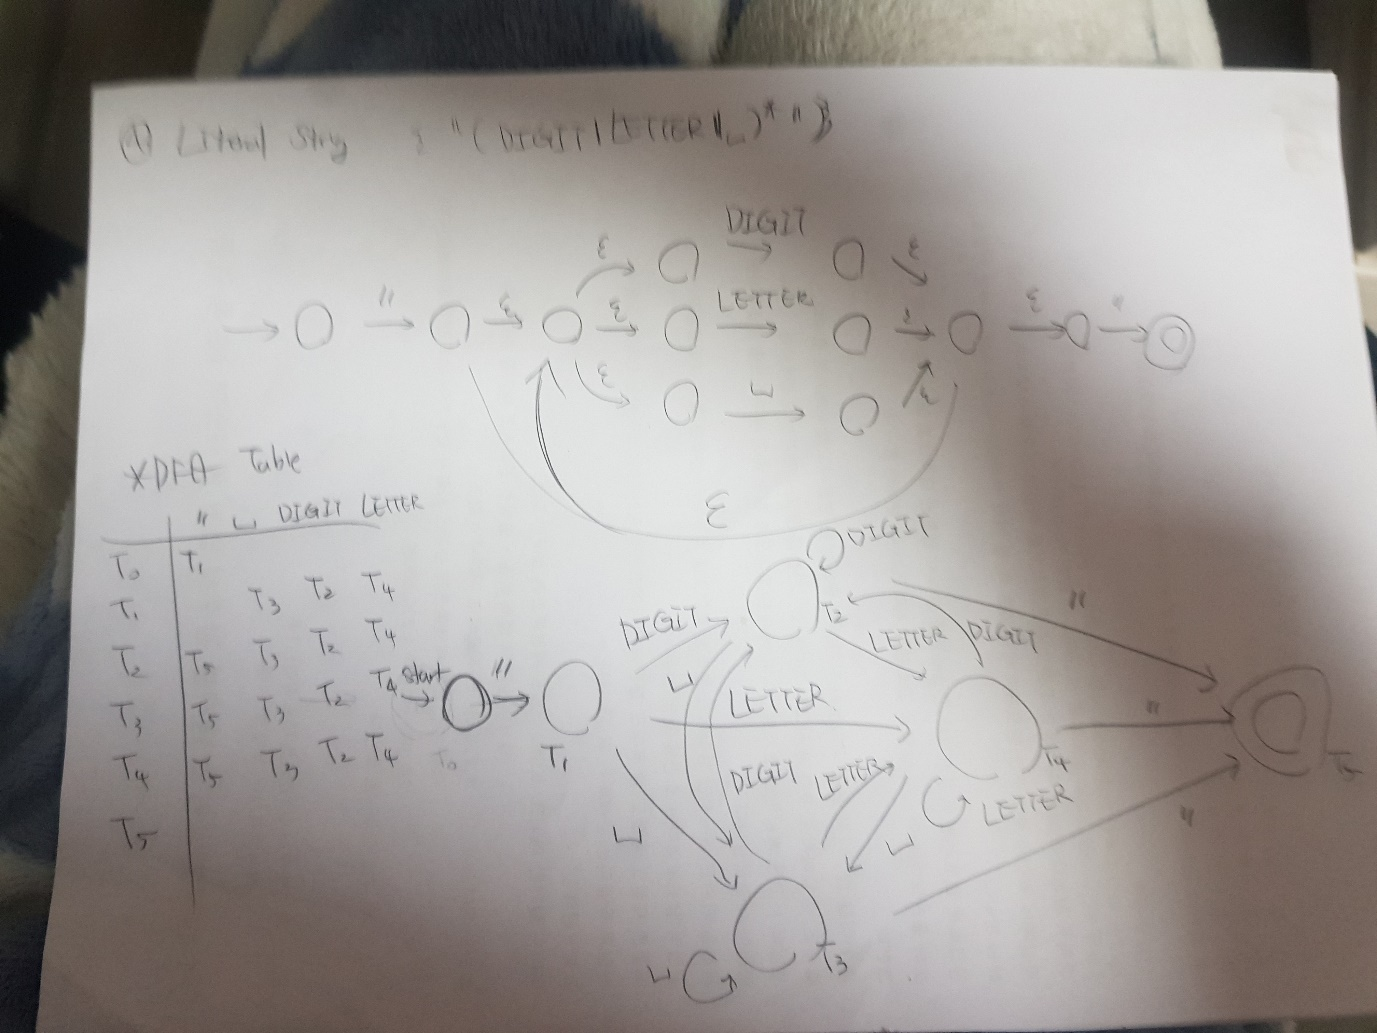 Literal String : "(DIGIT|LETTER|␣)* "}
DIGIT
ε ε
" ε ε LETTER ε ε "
ε ␣ ε
ε
*DFA Table
" ␣ DIGIT LETTER
T0 T1
T1 T3 T2 T4
T2 T5 T3 T2 T4
T3 T5 T3 T2 T4
T4 T5 T3 T2 T4
T5
DIGIT
T2
DIGIT
LETTER DIGIT
"
start "
␣
LETTER
"
T0 T1
DIGIT LETTER
T4
T5
LETTER
␣
␣
"
T3
␣